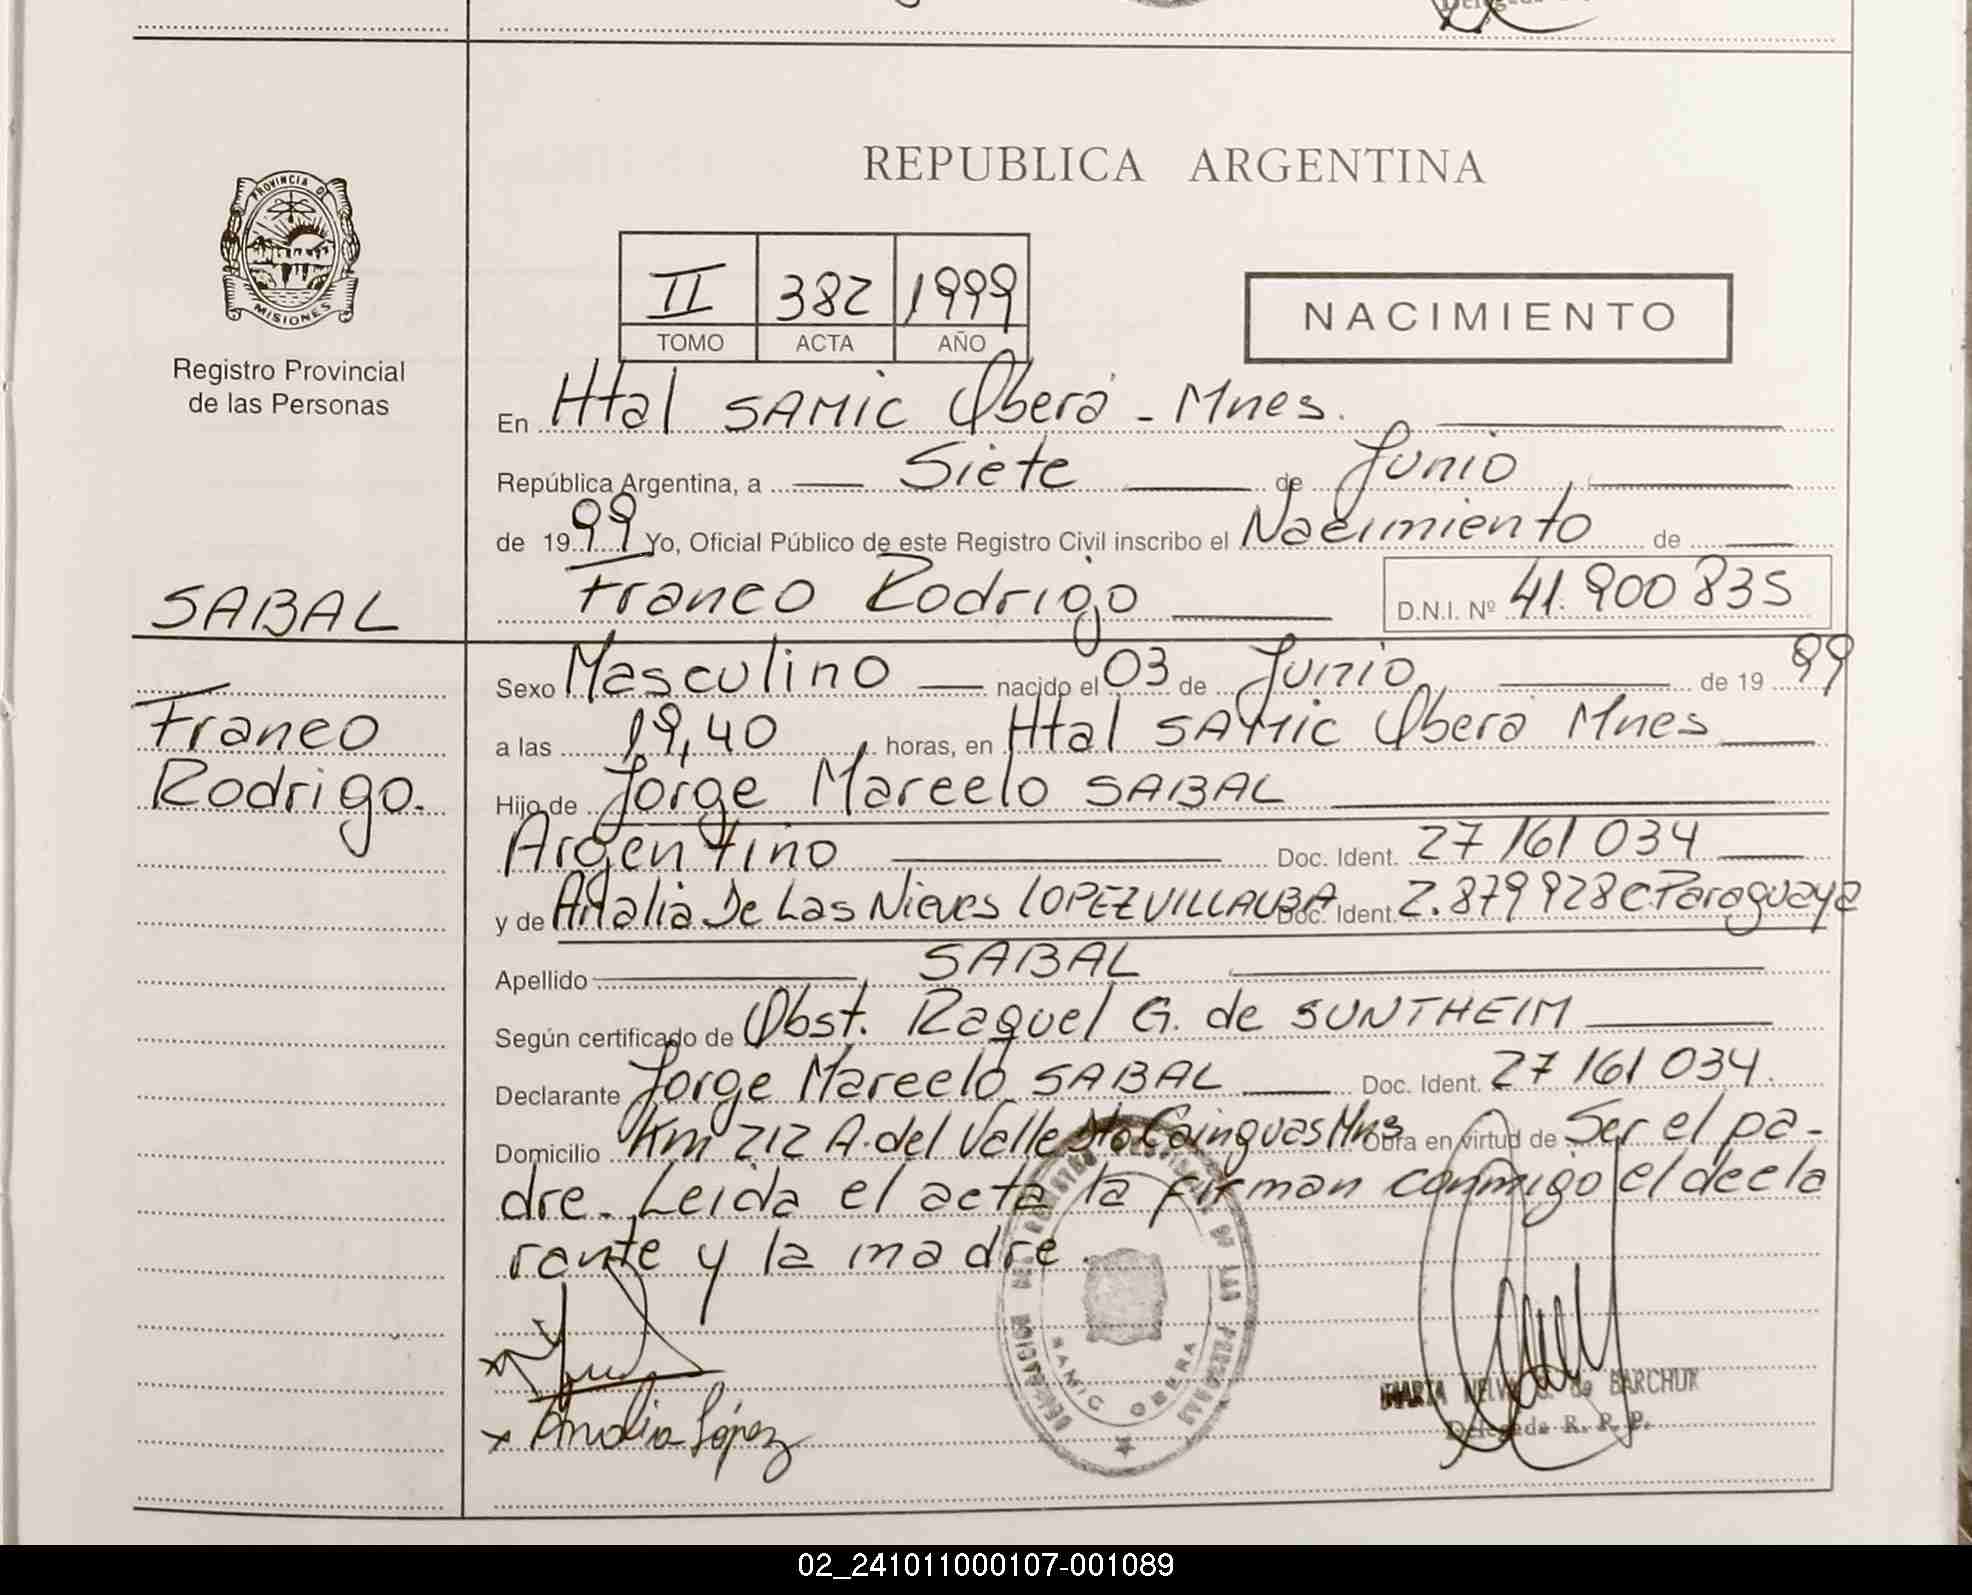 REPUBLICA ARGENTINA
PROVINCIA DE
MISIONES
Registro Provincial
de las Personas
II 382 1999
TOMO ACTA AÑO
NACIMIENTO
En Htal SAMIC Oberá - Mnes.
República Argentina, a Siete de Junio
de 1999 Yo, Oficial Público de este Registro Civil inscribo el Nacimiento de
SABAL
Franco Rodrigo D.N.I. Nº 41.900835
Franco
Rodrigo.
Sexo Masculino nacido el 03 de Junio de 1999
a las 19,40 horas, en Htal SAMIC Oberá Mnes
Hijo de Jorge Marcelo SABAL
Argentino Doc. Ident. 27161034
y de Analia De Las Nieves LOPEZ VILLALBA Doc. Ident. 2.879928 C Paraguaya
Apellido SABAL
Según certificado de Obst. Raquel G. de SUNTHEIM
Declarante Jorge Marcelo SABAL Doc. Ident. 27161034.
Domicilio Km 212 A. del Valle Dto Cainguas Mnes Obra en virtud de Ser el pa-
dre. Leida el acta la firman conmigo el decla
rante y la madre.
x
x Analia López
SAMIC OBERA
MARIA NELVA de BARCHUK
Delegada R. P. P.
02_241011000107-001089